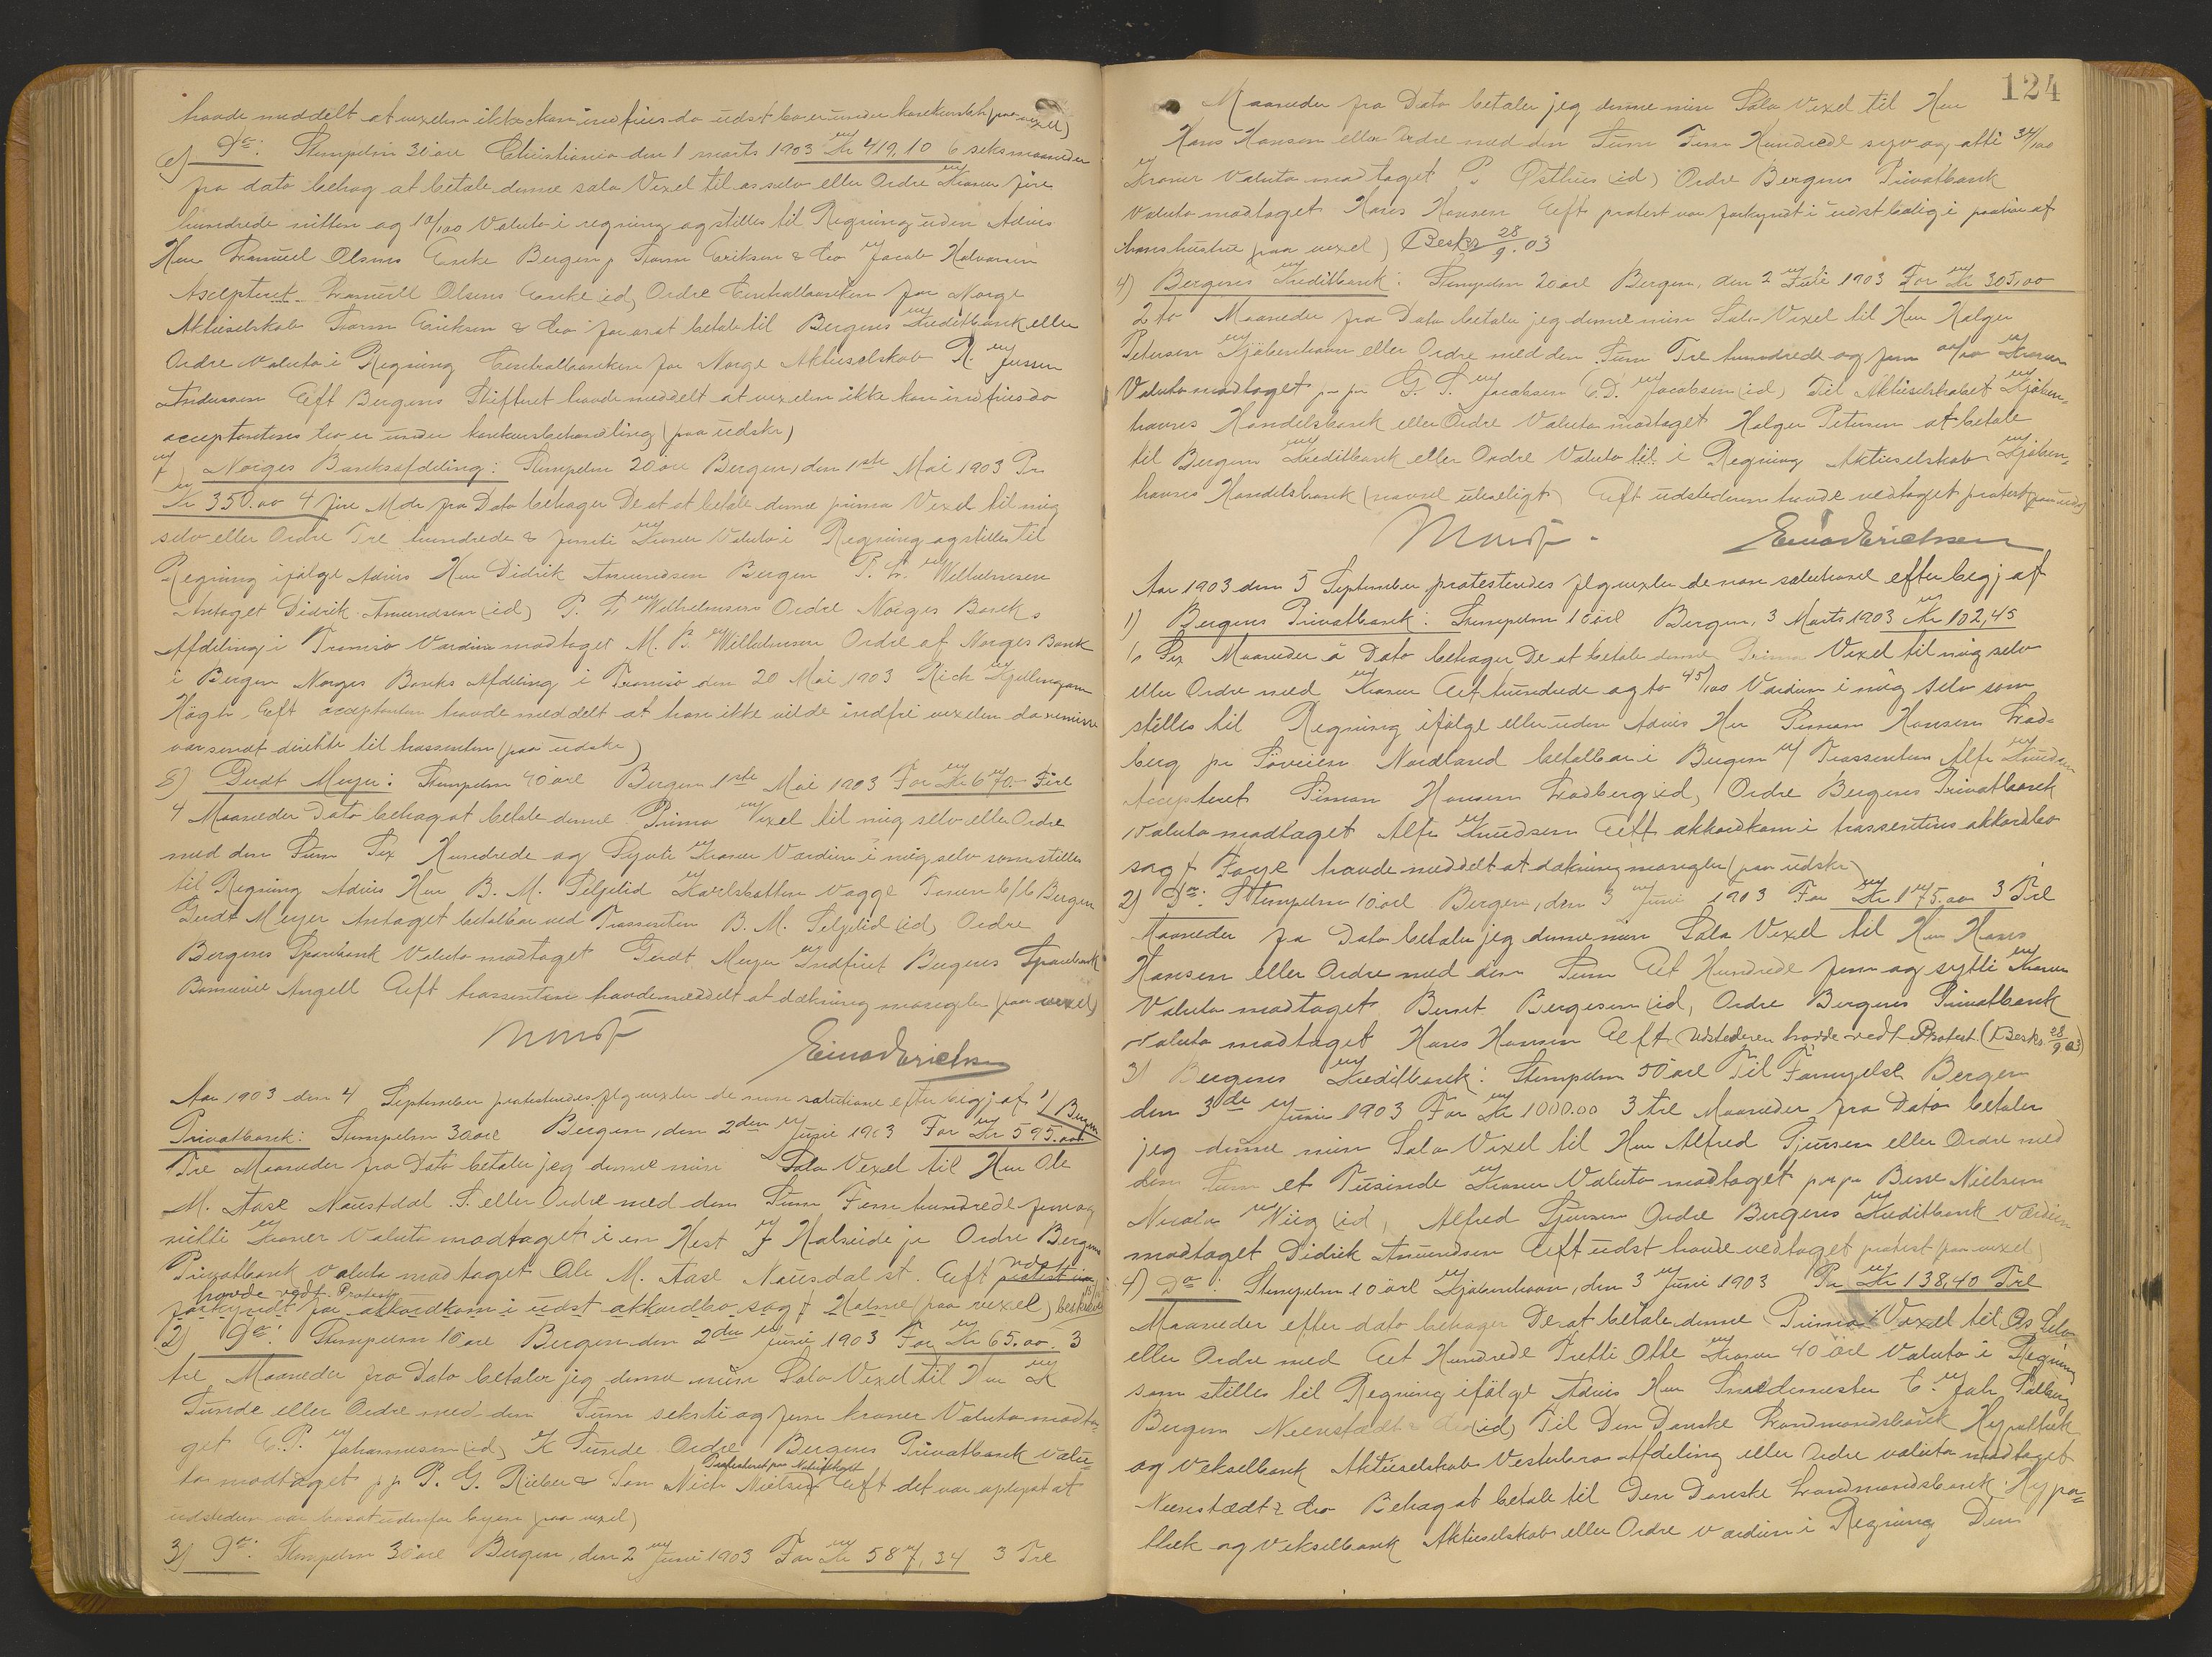 havde meddelt at vexelen ikke kan indfries da udst bo er under konkursbeh (paa vexel)
6) Do: Stempelm 30 öre Christiania den 1 marts 1903 Kr 419,10 6 seks maaneder
fra dato behag at betale denne sola Vexel til os selv eller Ordre Kroner fire
hundrede nitten og 10/100 Valuta i regning og stilles til Regning uden Advis
Herr Samuel Olsens Enke Bergen p Storm Eriksen & Co Jacob Halvorsen
Accepteret Samuel Olsens Enke (id) Ordre Centralbanken for Norge
Aktieselskab Storm Eriksen & Co for os at betale til Bergens Kreditbank eller
Ordre Valuta i Regning Centralbanken for Norge Aktieselskab R. Jussen
Andersen Eft Bergens Skifteret havde meddelt at vexelen ikke kan indfries da
acceptantens bo er under konkursbehandling (paa udskr)
7) Norges Banksafdeling: Stempelm 20 öre Bergen, den 1ste Mai 1903 Pr
Kr 350.00 4 fire Mdr fra Dato behager De at at betale denne prima Vexel til mig
selv eller Ordre Tre hundrede & femti Kroner Valuta i Regning og stilles til
Regning ifölge Advis Herr Didrik Amundsen Bergen P. L. Wilhelmsen
Antaget Didrik Amundsen (id) P. L. Wilhelmsen Ordre Norges Banks
Afdeling i Tromsö Værdien modtaget M. B. Wilhelmsen Ordre af Norges Bank
i Bergen Norges Banks Afdeling i Tromsö den 20 Mai 1903 Rich Kjellingsen
Högh. Eft acceptanten havde meddelt at han ikke vilde indfri vexelen da remisse
var sendt direkte til trassenten (paa udskr)
8) Gerdt Meyer: Stempelm 40 öre Bergen 1ste Mai 1903 For Kr 670.- Fire
4 Maaneder Dato behag at betale denne Prima Vexel til mig selv eller Ordre
med den Sum Sex Hundrede og Sytti Kroner Værdien i mig selv som stilles
til Regning Advis Herr B. M. Seljelid Vagge Tanen b/b Bergen
Gerdt Meyer Antaget betalbar ved Trassenten B. M. Seljelid (id) Ordre
Bergens Sparebank Valuta modtaget Gerdt Meyer Indfriet Bergens Sparebank
Bonnevie Angell Eft trassenten havde meddelt at dækning mangler (paa vexel)
Einar Erichsen
Aar 1903 den 4 September protesteredes flg vexler de non solutione efter begj af 1) Bergens
Privatbank: Stempelm 30 öre Bergen, den 2den Juni 1903 For Kr 595.00
Tre Maaneder fra Dato betaler jeg denne min Sola Vexel til Herr Ole
M. Aase Naustdal S. eller Ordre med den Sum Fem hundrede fem og
nitti Kroner Valuta modtaget i en Hest J Halseide jr Ordre Bergens
Privatbank valuta modtaget Ole M. Aase Nausdal st. Eft udst protest var
havde vedt. Protest
forkyndt for akkordkom i udst akkordbo sagf Holme (paa vexel)
2) Do: Stempelm 10 öre Bergen den 2den Juni 1903 For Kr 65.00. 3
tre Maaneder fra Dato betaler jeg denne min Sola Vexel til Herr K
Tunde eller Ordre med den Sum seksti og fem kroner Valuta modta-
get E. P. Johannesen (id) K Tunde Ordre Bergens Privatbank valu-
ta modtaget pp P. G. Rieber & Søn Nich Nielsen Eft det var oplyst at
udstederen var bosat udenfor byen (paa vexel)
3) Do: Stempelm 30 öre Bergen, den 2 Juni 1903 For Kr 587,34 3 Tre
124
Maaneder fra Dato betaler jeg denne min Sola Vexel til Herr
Hans Hansen eller Ordre med den Sum Fem Hundrede syv og otti 34/100
Kroner Valuta modtaget P. Østhus (id) Ordre Bergens Privatbank
Valuta modtaget Hans Hansen Eft protest var forkyndt i udst bolig i paahør af
hans hustru (paa vexel) (Beskr 28/9. 03
4) Bergens Kreditbank: Stempelm 20 öre Bergen, den 2 Juli 1903 For Kr 305,00
2 to Maaneder fra Dato betaler jeg denne min Sola Vexel til Herr Holger
Petersen Kjöbenhavn eller Ordre med den Sum Tre hundrede og fem 00/00 Kroner
Valuta modtaget pr pr G. S. Jacobsen E. D. Jacobsen (id) Til Aktieselskabet Kjöben-
havns Handelsbank eller Ordre Valuta modtaget Holger Petersen at betale
til Bergens Kreditbank eller Ordre Valuta til i Regning Aktieselskab Kjöben-
havns Handelsbank (navnel uleseligt) Eft udstederen havde vedtaget protest (paa udskr)
Einar Erichsen
Aar 1903 den 5 September protesteredes flg vexler de non solutione efter begj af
1) Bergens Privatbank: Stempelm 10 öre Bergen, 3 Marts 1903 Kr 102,45
6 Sex Maaneder á Dato behager De at betale denne Prima Vexel til mig selv
eller Ordre med Kroner Et hundrede og to 45/100 Værdien i mig selv som
stilles til Regning ifölge eller uden Advis Herr Simon Hansen Stad-
berg pr Söveien Nordland betalbar i Bergen v/ Trassenten Alfr Knudsen
Accepteret Simon Hansen Stadberg (id) Ordre Bergens Privatbank
Valuta modtaget Alfr Knudsen Eft akkordkom i trassentens akkordbo
sagf Faye havde meddelt at dækning mangler (paa udskr)
2) Do: Stempelm 10 öre Bergen, den 3 Juni 1903 For Kr 175.00 3 Tre
Maaneder fra Dato betaler jeg denne min Sola Vexel til Herr Hans
Hansen eller Ordre med den Sum Et Hundrede fem og sytti Kroner
Valuta modtaget Bernt Bergesen (id) Ordre Bergens Privatbank
Valuta modtaget Hans Hansen Eft Udstederen havde vedt Protest (Beskr. 28/9 03)
3) Bergens Kreditbank: Stempelm 50 öre Til Fornyelse Bergen
den 3de Juni 1903 For Kr 1000.00 3 tre Maaneder fra Dato betaler
jeg denne min Sola Vexel til Herr Alfred Gjursen eller Ordre med
den Sum et Tusinde Kroner Valuta modtaget pr pr Besse Nielsen
Nicola Wiig (id) Alfred Gjursen Ordre Bergens Kreditbank Værdien
modtaget Didrik Amundsen Eft udst havde vedtaget protest (paa vexel)
4) Do: Stempelm 10 öre Kjöbenhavn, den 3 Juni 1903 Pr Kr 138,40 Tre
Maaneder efter dato behager De at betale denne Prima Vexel til Os Selv
eller Ordre med Et Hundrede Tretti Otte Kroner 40 öre Valuta i Regning
som stilles til Regning ifölge Advis Herr Snedkermester C. Joh Solberg
Bergen Neenstædt & Co (id) Til Den Danske Landmandsbank Hypothek
og Vekselbank Aktieselskab Vesterbro Afdeling eller Ordre valuta modtaget
Neenstædt & Co Behag at betale til Den Danske Landmandsbank Hypo-
thek og Vekselbank Aktieselskab eller Ordre værdien i Regning Den